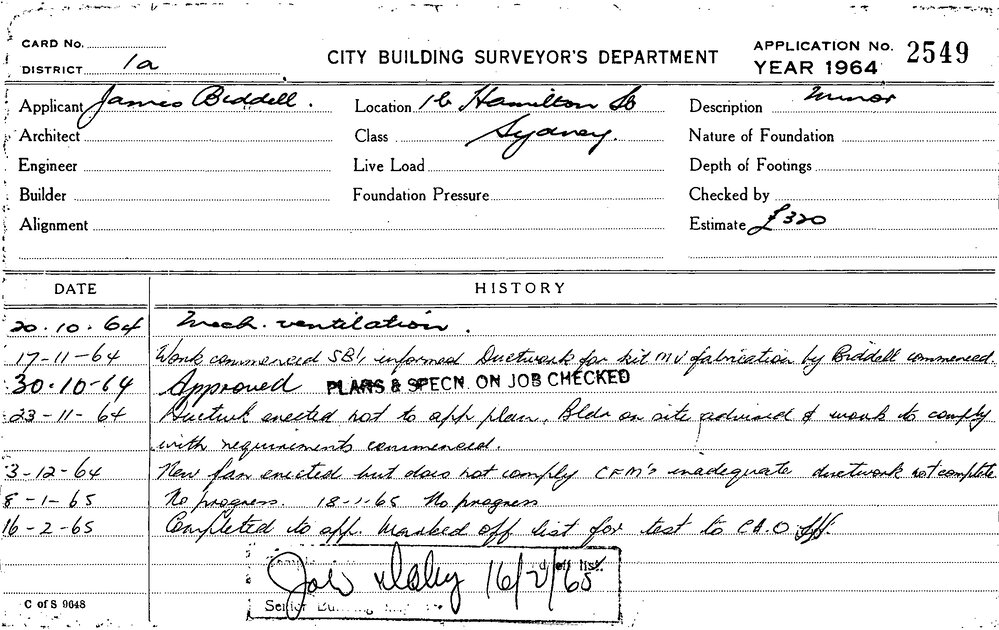 CARD No.
DISTRICT 1a
CITY BUILDING SURVEYOR'S DEPARTMENT
APPLICATION No. 2549
YEAR 1964
Applicant James Biddell. Location 16 Hamilton St Description Minor
Architect Class Sydney. Nature of Foundation
Engineer Live Load Depth of Footings
Builder Foundation Pressure Checked by
Alignment Estimate £320
DATE HISTORY
20.10.64 Mech. ventilation.
17-11-64 Work commenced informed Ductwork for kit MV fabrication by Biddell commenced.
30.10-64 Approved PLANS & SPECN. ON JOB CHECKED
23-11-64 Ductwk erected not to app plan. Bldr on site advised & work to comply
with requirements commenced.
3-12-64 New fan erected but does not comply CFM's inadequate ductwork not complete
8-1-65 No progress. 18-1-65 No progress
16-2-65 Completed to app. Marked off list for test to
off list.
16/2/65
Senior
C of S 9648